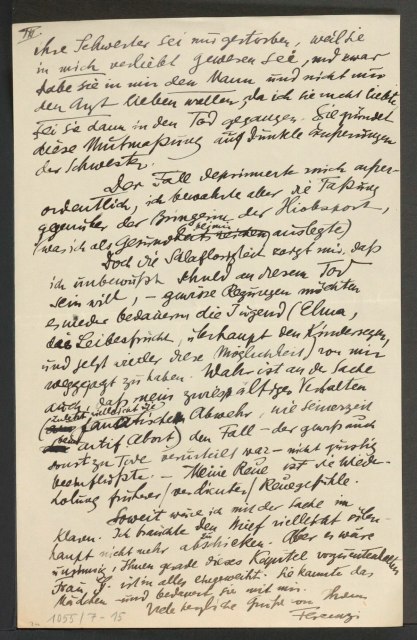 III.
ihre Schwester sei nur gestorben, weil sie
in mich verliebt gewesen sei, und zwar
habe sie in mir den Mann und nicht nur
den Arzt lieben wollen, da ich sie nicht liebte
sei sie dann in den Tod gegangen. Sie gründet
diese Mutmaßung auf dunkle Äusserungen
der Schwester.
Der Fall deprimierte mich ausser-
ordentlich, ich bewahrte aber die Fassung
gegenüber der Bringerin der Hiobspost,
(was ich als Gesund auslegte)
Doch die Schlaflosigkeit zeigt mir, daß
ich unbewußt Schuld an diesem Tod
sein will, – gewisse Regungen möchten
es wieder bedauern die Jugend (Elma,
Leibesfrucht, überhaupt den Kindersegen,
und jetzt wieder diese Möglichkeit) von mir
weggejagt zu haben. Wahr ist an der Sache
auch, daß mein Verhalten
Abwehr, wie seinerzeit
den Fall – der
ernst zu Tode verurteilt war – nicht günstig
beeinflußte. – Meine Reue ist die Wieder-
holung früherer (verdienter) Reuegefühle.
Soweit wäre ich mit der Sache im
Klaren. Ich brauchte den Brief vielleicht über-
haupt nicht mehr abschicken. Aber es wäre
unsinnig, Ihnen gerade dieses Kapitel vorzuenthalten
Frau G. ist in alles eingeweiht. Sie kannte das
Mädchen und bedauert sie mit mir.
Viele herzliche Grüße von Ihrem
Ferenczi
1055/7-15